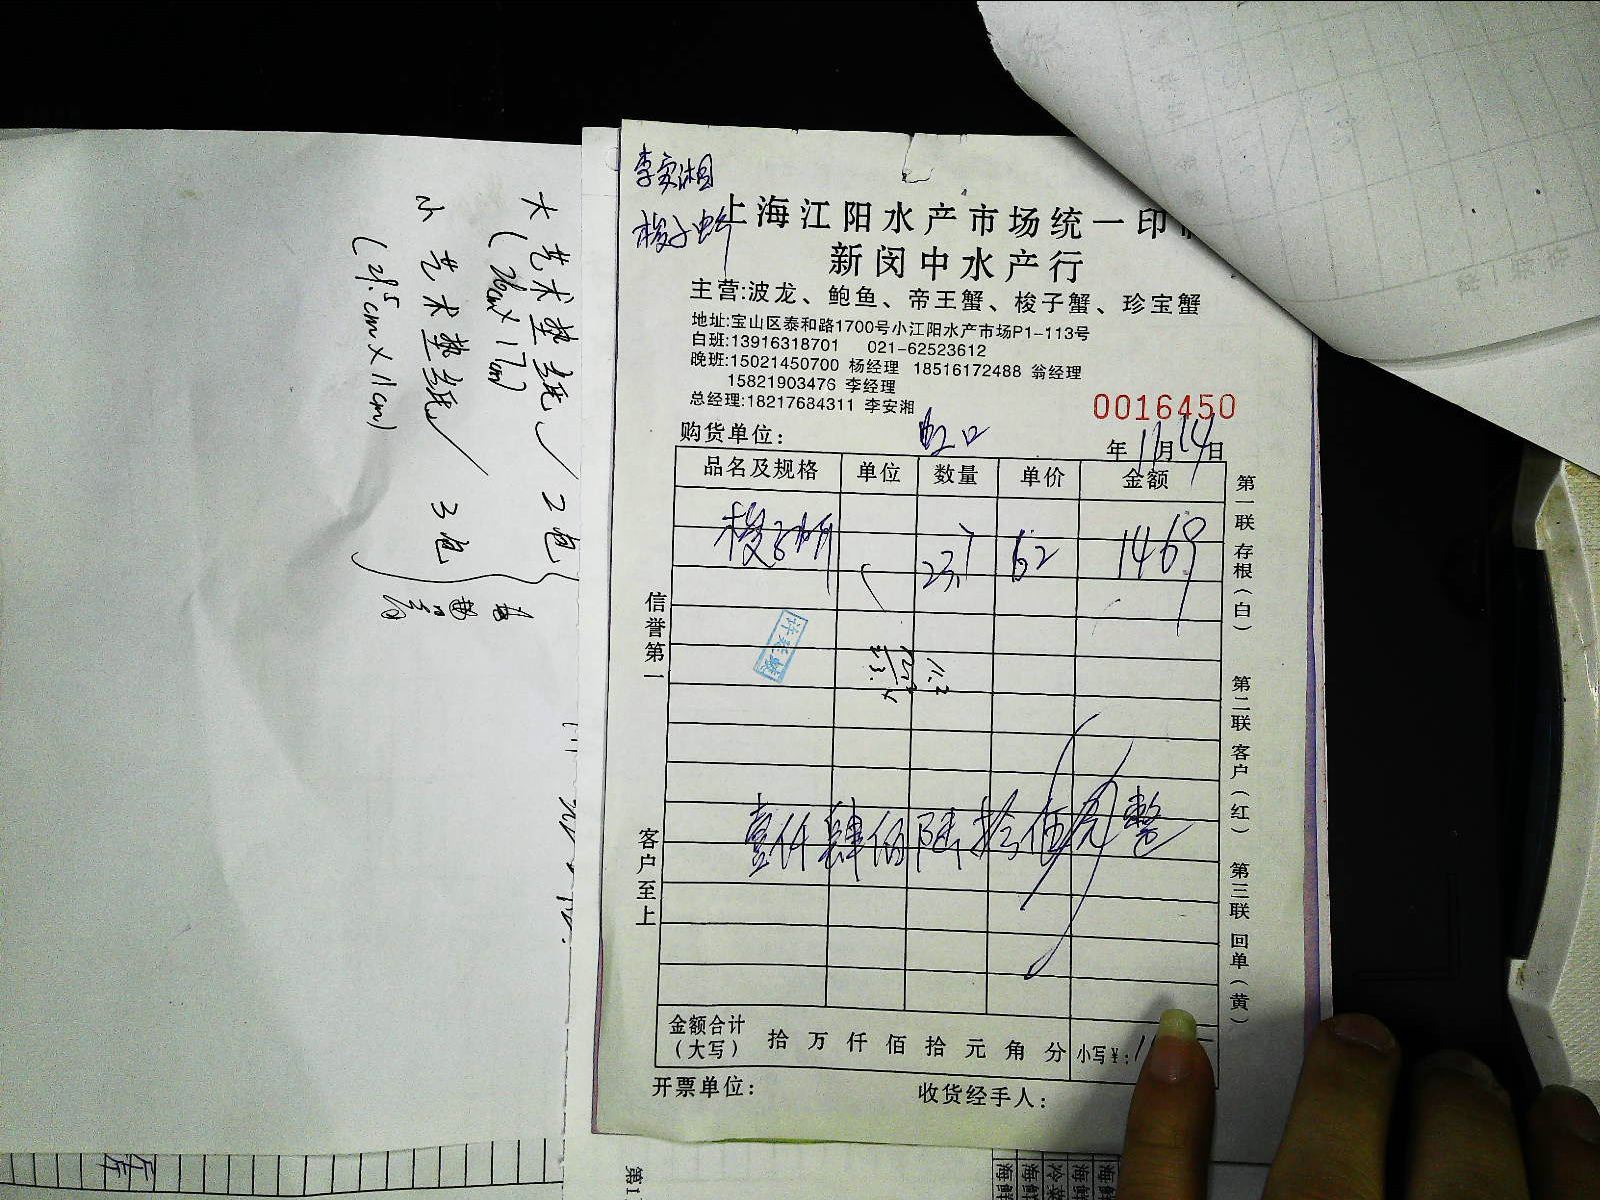 李安湘
梭子蟹
上海江阳水产市场统一印
新闵中水产行
主营:波龙、鲍鱼、帝王蟹、梭子蟹、珍宝蟹
地址:宝山区泰和路1700号小江阳水产市场P1-113号
白班:13916318701 021-62523612
晚班:15021450700 杨经理 18516172488 翁经理
15821903476 李经理
总经理:18217684311 李安湘
0016450
购货单位: 虹口 年 11 月 14 日
品名及规格 单位 数量 单价 金额
梭子蟹 23.7 62 1469
11.2
12.2
23.4
壹仟肆佰陆拾 元整
金额合计
(大写) 拾 万 仟 佰 拾 元 角 分 小写¥:
开票单位: 收货经手人:
信誉第一
客户至上
第一联 存根(白) 第二联 客户(红) 第三联 回单(黄)
大艺术垫纸 2包
(26cm×17cm)
小艺术垫纸 3包
(21.5cm×11cm)